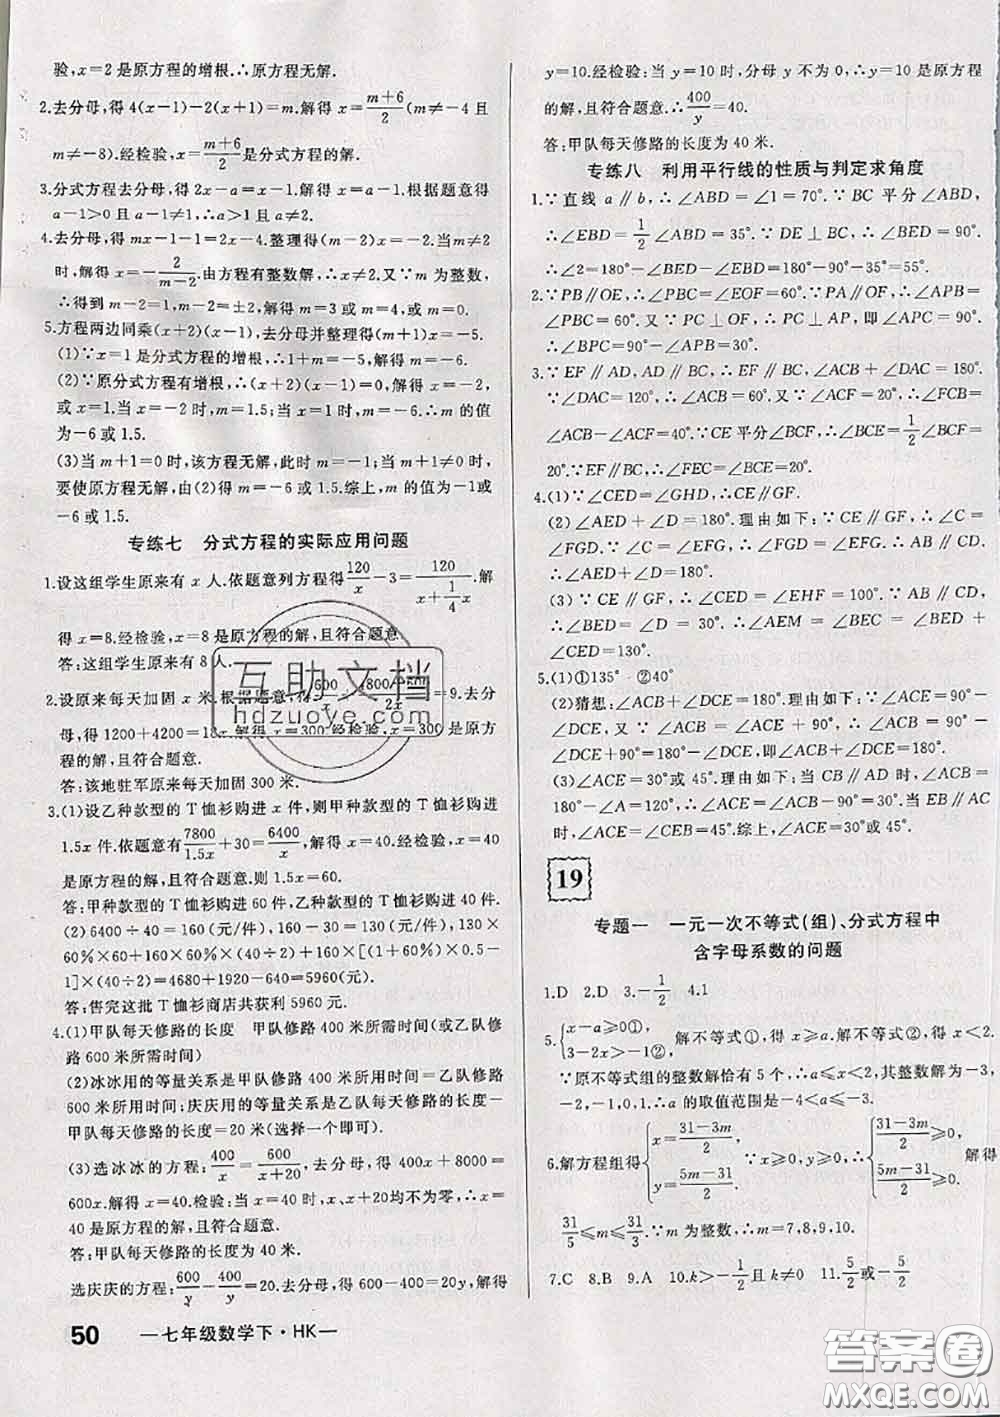 验,x=2是原方程的增根.∴原方程无解.
2.去分母,得4(x-1)-2(x+1)=m.解得x=(m+6)/2(m≠-4且
m≠-8).经检验,x=(m+6)/2是分式方程的解.
3.分式方程去分母,得2x-a=x-1.解得x=a-1.根据题意得
a-1>0且a-1≠1,∴a>1且a≠2.
4.去分母,得mx-1-1=2x-4.整理得(m-2)x=-2.当m≠2
时,解得x=-2/(m-2).由方程有整数解,∴x≠2.又∵m为整数,
∴得到m-2=-2,m-2=±2,解得m=3或m=4,或m=0.
5.方程两边同乘(x+2)(x-1),去分母并整理得(m+1)x=-5.
(1)∵x=1是分式方程的增根,∴1+m=-5,解得m=-6.
(2)∵原分式方程有增根,∴(x+2)(x-1)=0,解得x=-2,
或x=1,当x=-2时,m=1.5;当x=1时,m=-6.∴m的值
为-6或1.5.
(3)当m+1=0时,该方程无解,此时m=-1;当m+1≠0时,
要使原方程无解,由(2)得m=-6或1.5.综上,m的值为-1或
-6或1.5.
专练七 分式方程的实际应用问题
1.设这组学生原来有x人.依题意列方程得120/x-3=120/(x+1/4x).解
得x=8.经检验,x=8是原方程的解,且符合题意.
答:这组学生原来有8人.
2.设原来每天加固x米.根据题意,得600/x+(4800-600)/2x=9.去分
母,得1200+4200=18x.解得x=300.经检验,x=300是原方程
的解,且符合题意.
答:该地驻军原来每天加固300米.
3.(1)设乙种款型的T恤衫购进x件,则甲种款型的T恤衫购进
1.5x件.依题意得7800/1.5x+30=6400/x,解得x=40.经检验,x=40
是原方程的解,且符合题意.则1.5x=60.
答:甲种款型的T恤衫购进60件,乙种款型的T恤衫购进40件.
(2)6400÷40=160(元/件),160-30=130(元/件),130×
60%×60+160×60%×(40÷2)-160×[1-(1+60%)×0.5]×(40÷2)=4680+1920-640=5960(元).
答:售完这批T恤衫商店共获利5960元.
4.(1)甲队每天修路的长度 甲队修路400米所需时间(或乙队修
路600米所需时间)
(2)冰冰用的等量关系是甲队修路400米所用时间=乙队修路
600米所用时间;庆庆用的等量关系是乙队每天修路的长度-
甲队每天修路的长度=20米(选择一个即可).
(3)选冰冰的方程:400/x=600/(x+20),去分母,得400x+8000=
600x.解得x=40.检验:当x=40时,x、x+20均不为零,∴x=
40是原方程的解,且符合题意.
答:甲队每天修路的长度为40米.
选庆庆的方程:600/y-400/y=20.去分母,得600-400=20y,解得
50 —七年级数学下·HK—
y=10.经检验:当y=10时,分母y不为0,∴y=10是原方程
的解,且符合题意.∴400/y=40.
答:甲队每天修路的长度为40米.
专练八 利用平行线的性质与判定求角度
1.∵直线a∥b,∴∠ABD=∠1=70°.∵BC平分∠ABD,
∴∠EBD=1/2∠ABD=35°.∵DE⊥BC,∴∠BED=90°.
∴∠2=180°-∠BED-∠EBD=180°-90°-35°=55°.
2.∵PB∥OE,∴∠PBC=∠EOF=60°.∵PA∥OF,∴∠APB=
∠PBC=60°.又∵PC⊥OF,∴PC⊥AP,即∠APC=
90°.∴∠BPC=90°-∠APB=30°.
3.∵EF∥AD,AD∥BC,∴EF∥BC,∠ACB+∠DAC=180°.
∵∠DAC=120°,∴∠ACB=60°.又∵∠ACF=20°,∴∠FCB=
∠ACB-∠ACF=40°.∵CE平分∠BCF,∴∠BCE=1/2∠BCF=
20°.∵EF∥BC,∴∠FEC=∠BCE=20°.
4.(1)∵∠CED=∠GHD,∴CE∥GF.
(2)∠AED+∠D=180°.理由如下:∵CE∥GF,∴∠C=
∠FGD.又∵∠C=∠EFG,∴∠FGD=∠EFG.∴AB∥CD.
∴∠AED+∠D=180°.
(3)∵CE∥GF,∴∠CED=∠EHF=100°.∵AB∥CD,
∴∠BED=∠D=30°.∴∠CEB=∠CED+∠BED=
130°.∴∠AEC=180°-∠CEB=50°.
5.(1)①135° ②40°
(2)猜想:∠ACB+∠DCE=180°.理由如下:∵∠ACE=90°-
∠DCE,又∵∠ACB=∠ACE+90°,∴∠ACB=90°-
∠DCE+90°=180°-∠DCE,即∠ACB+∠DCE=180°.
(3)∠ACE=30°或45°.当CB∥AD时,∠ACE=∠ACB-
90°=180°-∠A-90°=180°-60°-90°=30°.当EB∥AC
时,∠ACE=∠CEB=45°.综上,∠ACE=30°或45°.
19
专题一 一元一次不等式(组)、分式方程中
含字母系数的问题
1.D 2.D 3.-1/2 4.1
5.{x-a≥0①, 3-2x>-1②, 解不等式①,得x≥a.解不等式②,得x<2.
∵原不等式组的整数解恰有5个,∴a≤x<2,其整数解为-3,
-2,-1,0,1.∴a的取值范围是-4<a≤-3.
6.解方程组得{x=(31-3m)/2, y=(5m-31)/2. ∵x≥0,y≥0,∴{(31-3m)/2≥0, (5m-31)/2≥0. 解得
31/5≤m≤31/3.∵m为整数,∴m=7,8,9,10.
7.C 8.B 9.A 10.k>-1/2且k≠0 11.5/2或-5/2
互助文档
hdzuoye.com
答案圈
MXQE.COM